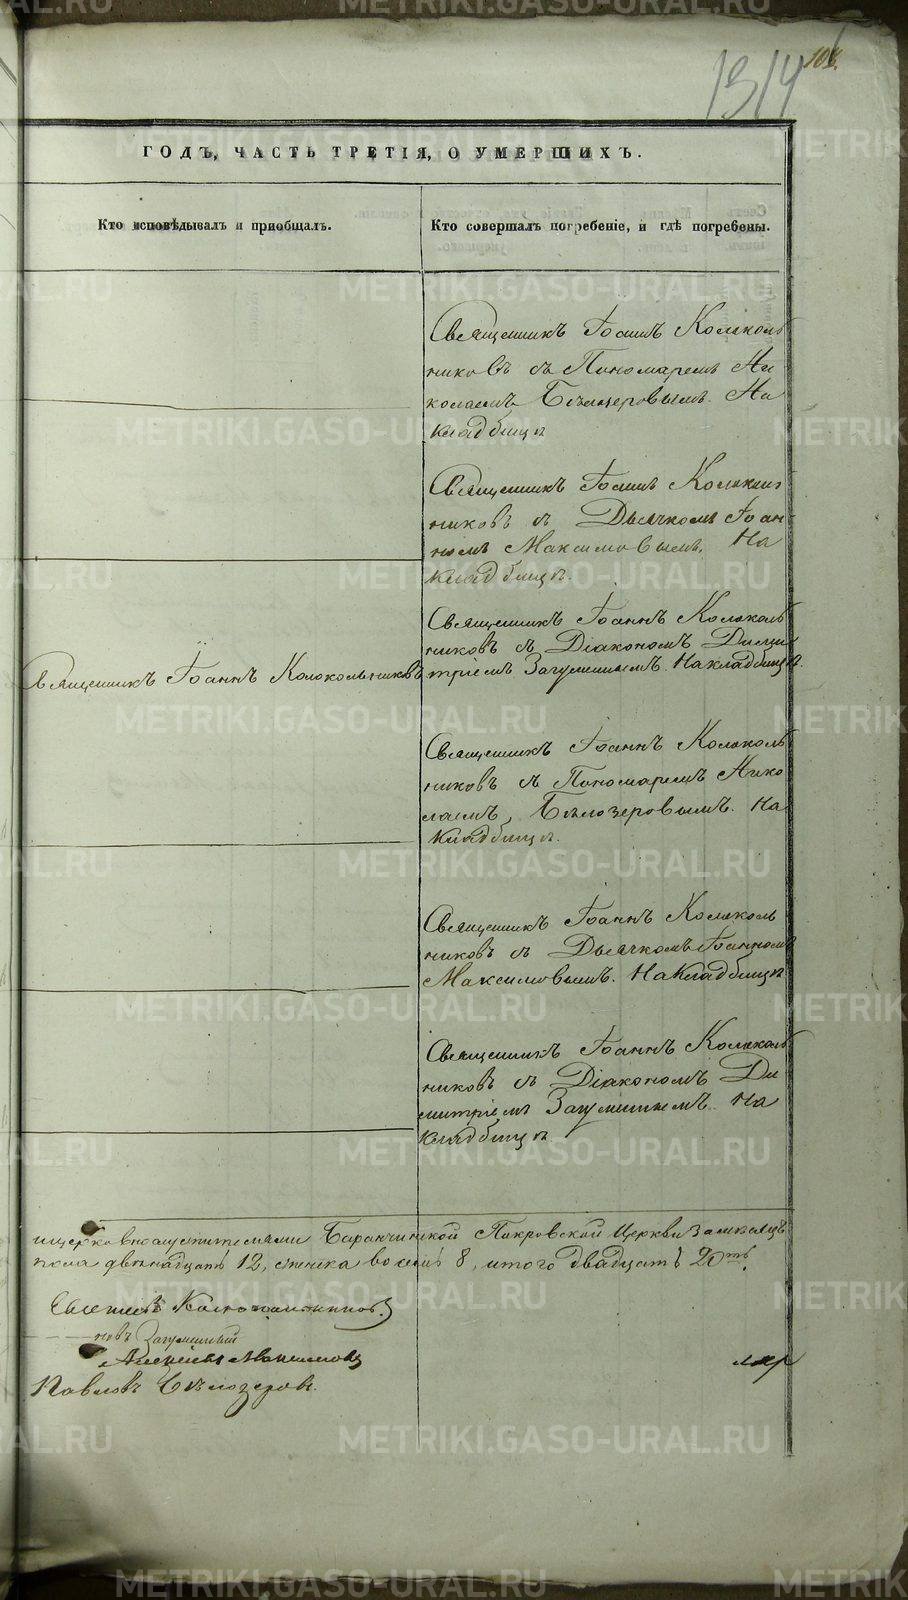 1314
104.
ГОДЪ, ЧАСТЬ ТРЕТІЯ, О УМЕРШИХЪ.
Кто исповѣдывалъ и пріобщалъ.
Кто совершалъ погребеніе, и гдѣ погребены.
Священникъ Іоаннъ Коликоль
никовъ съ Пономаремъ Ни
колаемъ Бѣлозеровымъ. На
кладбищѣ
Священникъ Іоаннъ Коликоль
никовъ съ Дьячкомъ Іоан
номъ Максимовымъ. На
кладбищѣ.
Священникъ Іоаннъ Колоколь
никовъ съ Діакономъ Дими
тріемъ Загуменнымъ. На кладбищѣ.
Священникъ Іоаннъ Колокольниковъ
Священникъ Іоаннъ Колоколь
никовъ съ Пономаремъ Нико
лаемъ Бѣлозеровымъ. На
кладбищѣ.
Священникъ Іоаннъ Колоколь
никовъ съ Дьячкомъ Іоанномъ
Максимовымъ. На кладбищѣ
Священникъ Іоаннъ Колоколь
никовъ съ Діакономъ Ди
митріемъ Загуменнымъ. На
кладбищѣ.
Баранчинской Покровской Церкви
пола двѣнадцать 12, женска восемь 8, итого двадцать 20ть.
новъ Загуменный
Максимовъ
Павловъ Бѣлозеровъ.
METRIKI.GASO-URAL.RU